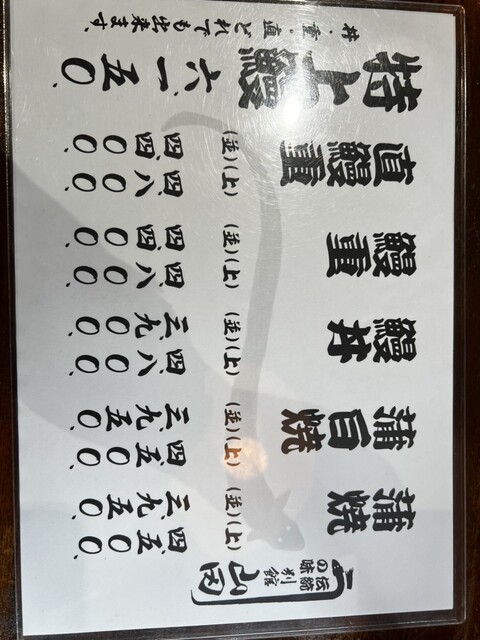 伝統の味
別館
山田
蒲焼
(上) 四、五〇〇
(並) 三、九五〇
焼
(上) 四、五〇〇
(並) 三、九五〇
鰻丼
(上) 四、八〇〇
(並) 三、九〇〇
鰻重
(上) 四、八〇〇
(並) 四、四〇〇
直鰻重
(上) 四、八〇〇
(並) 四、四〇〇
特上鰻 六、一五〇
丼・重・直どれでも出来ます。